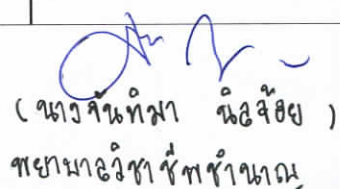 (นางจันทิมา นิลจ้อย)
พยาบาลวิชาชีพชำนาญ